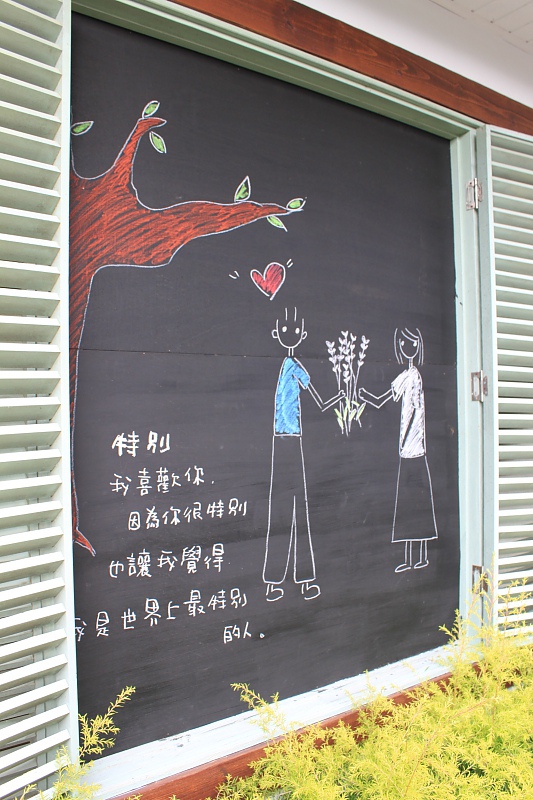 特別
我喜歡你.
因為你很特別
也讓我覺得
我是世界上最特別
的人。